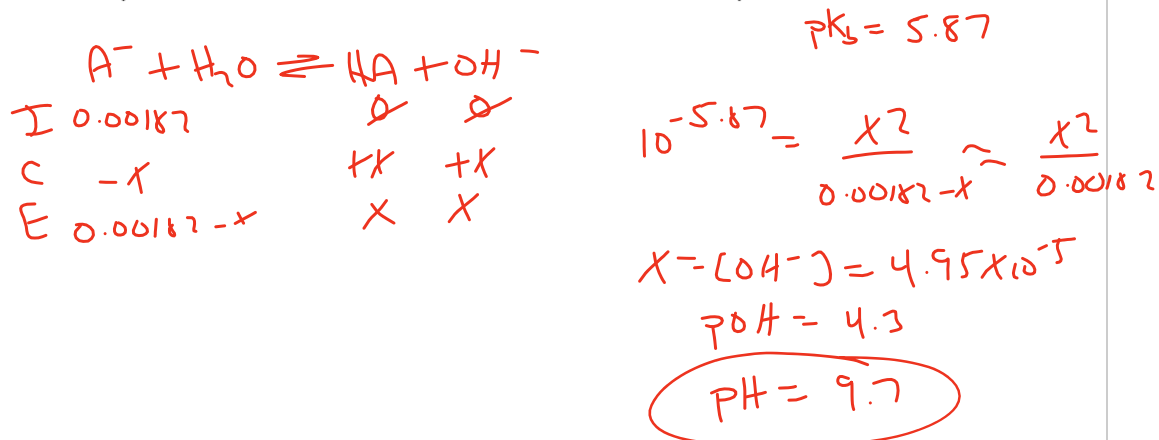 A⁻ + H₂O ⇌ HA + OH⁻
I 0.00182 0 0
C -x +x +x
E 0.00182-x x x
pKb = 5.87
10^-5.87 = x²/(0.00182-x) ≈ x²/0.00182
x = [OH⁻] = 4.95x10^-5
pOH = 4.3
pH = 9.7